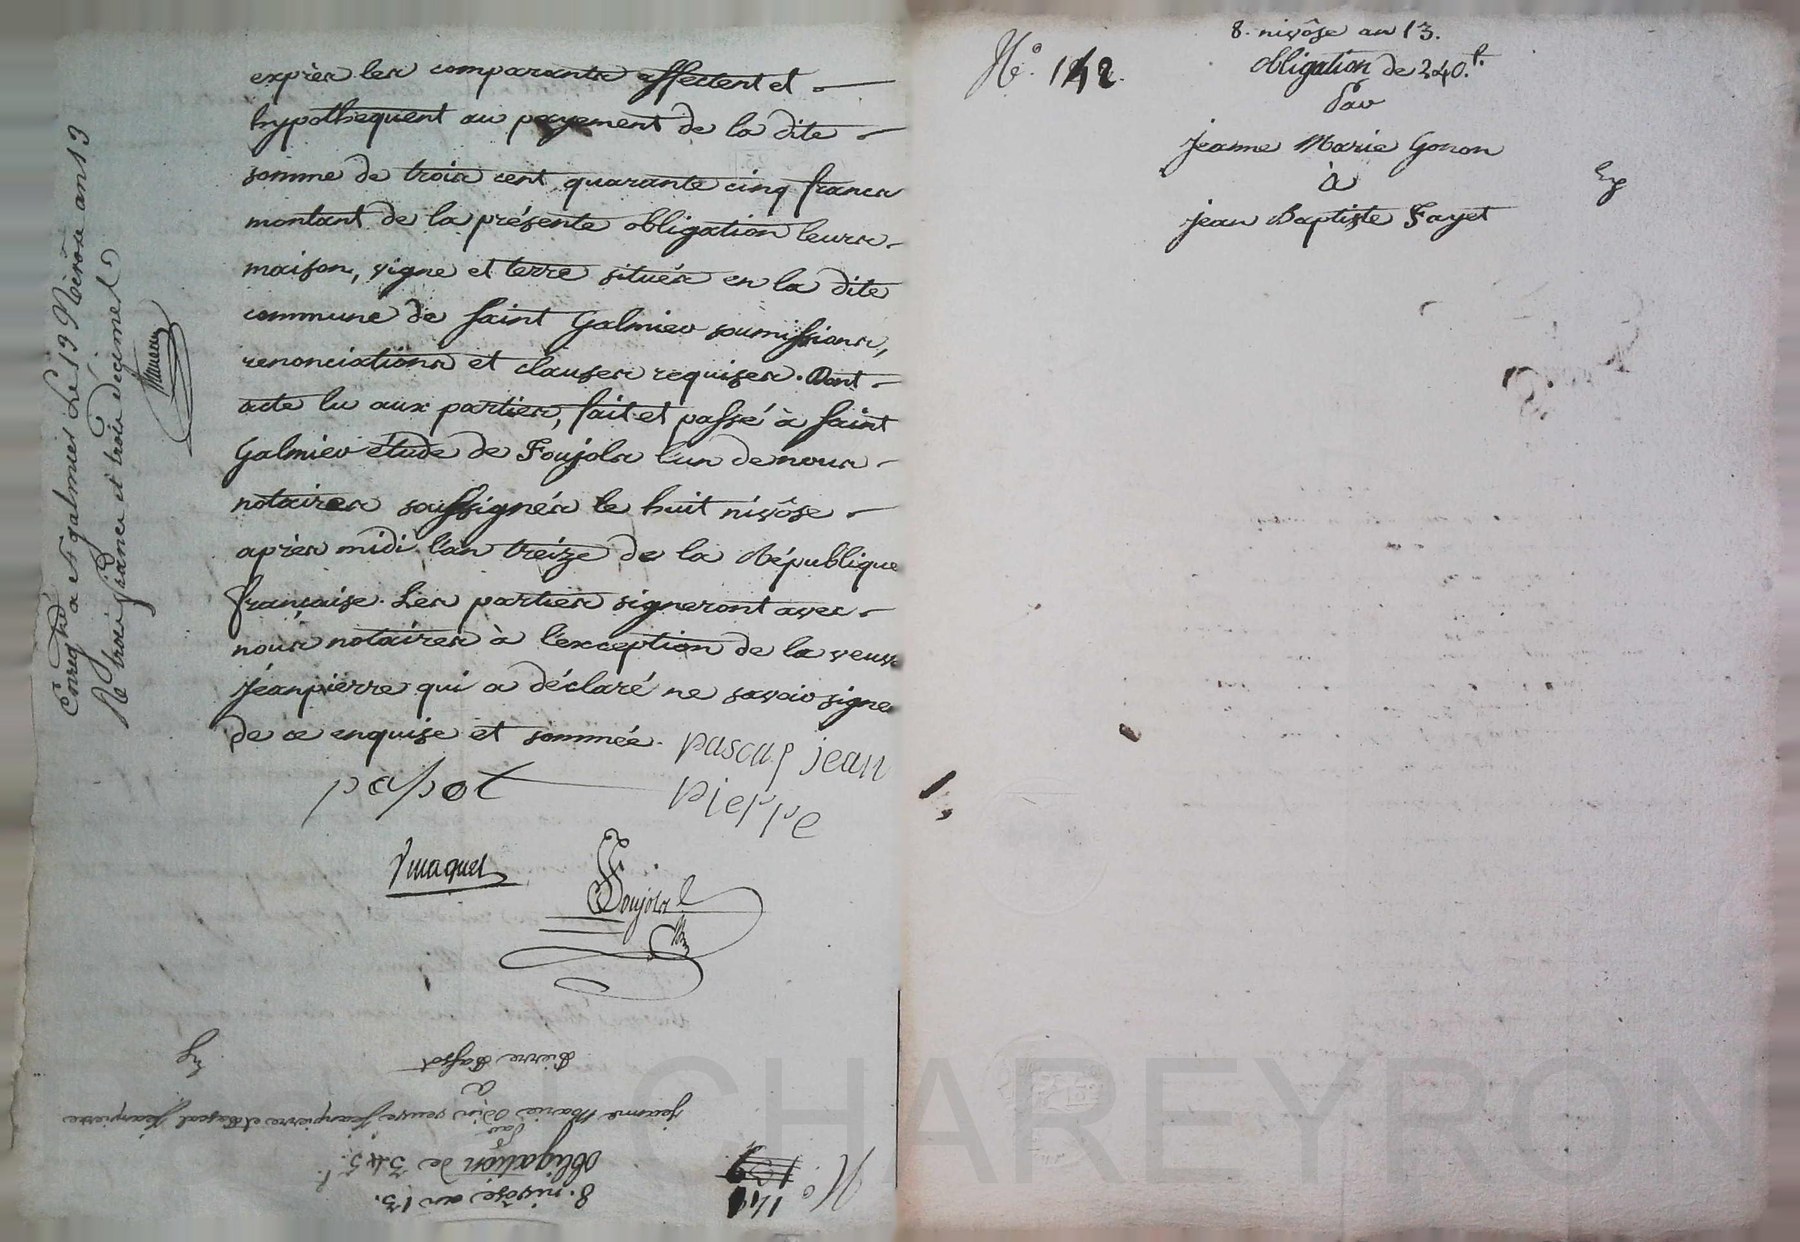 exprès les comparants affectent et
hypothequent au payement de la dite
somme de trois cent quarante cinq francs
montant de la présente obligation leurs
maison, vigne et terre situés en la dite
commune de Saint Galmier soumissions,
renonciations et clauses requises. Dont
acte lu aux parties, fait et passé à Saint
Galmier étude de Foujols l'un de nous
notaires soussignés le huit nivôse
après midi l'an treize de la République
française. Les parties signeront avec
nous notaires à l'exception de la veuve
Jeanpierre qui a déclaré ne savoir signe
de ce enquise et sommée.
pascal jean
pierre
passot
Foujols
Enregtré a St galmier Le 19 Nivose an 13
Rc trois francs et trois decimes
8. nivôse an 13.
obligation de 345.f.
Par
jeanne Marie veuve Jeanpierre et Pascal Jeanpierre
à
Pierre Passot
N.o
Ex
8. nivôse an 13.
N.o 142.
obligation de 240.f.
Par
jeanne Marie Gonon
à
jean Baptiste Fayet
Ex
CHAREYRON